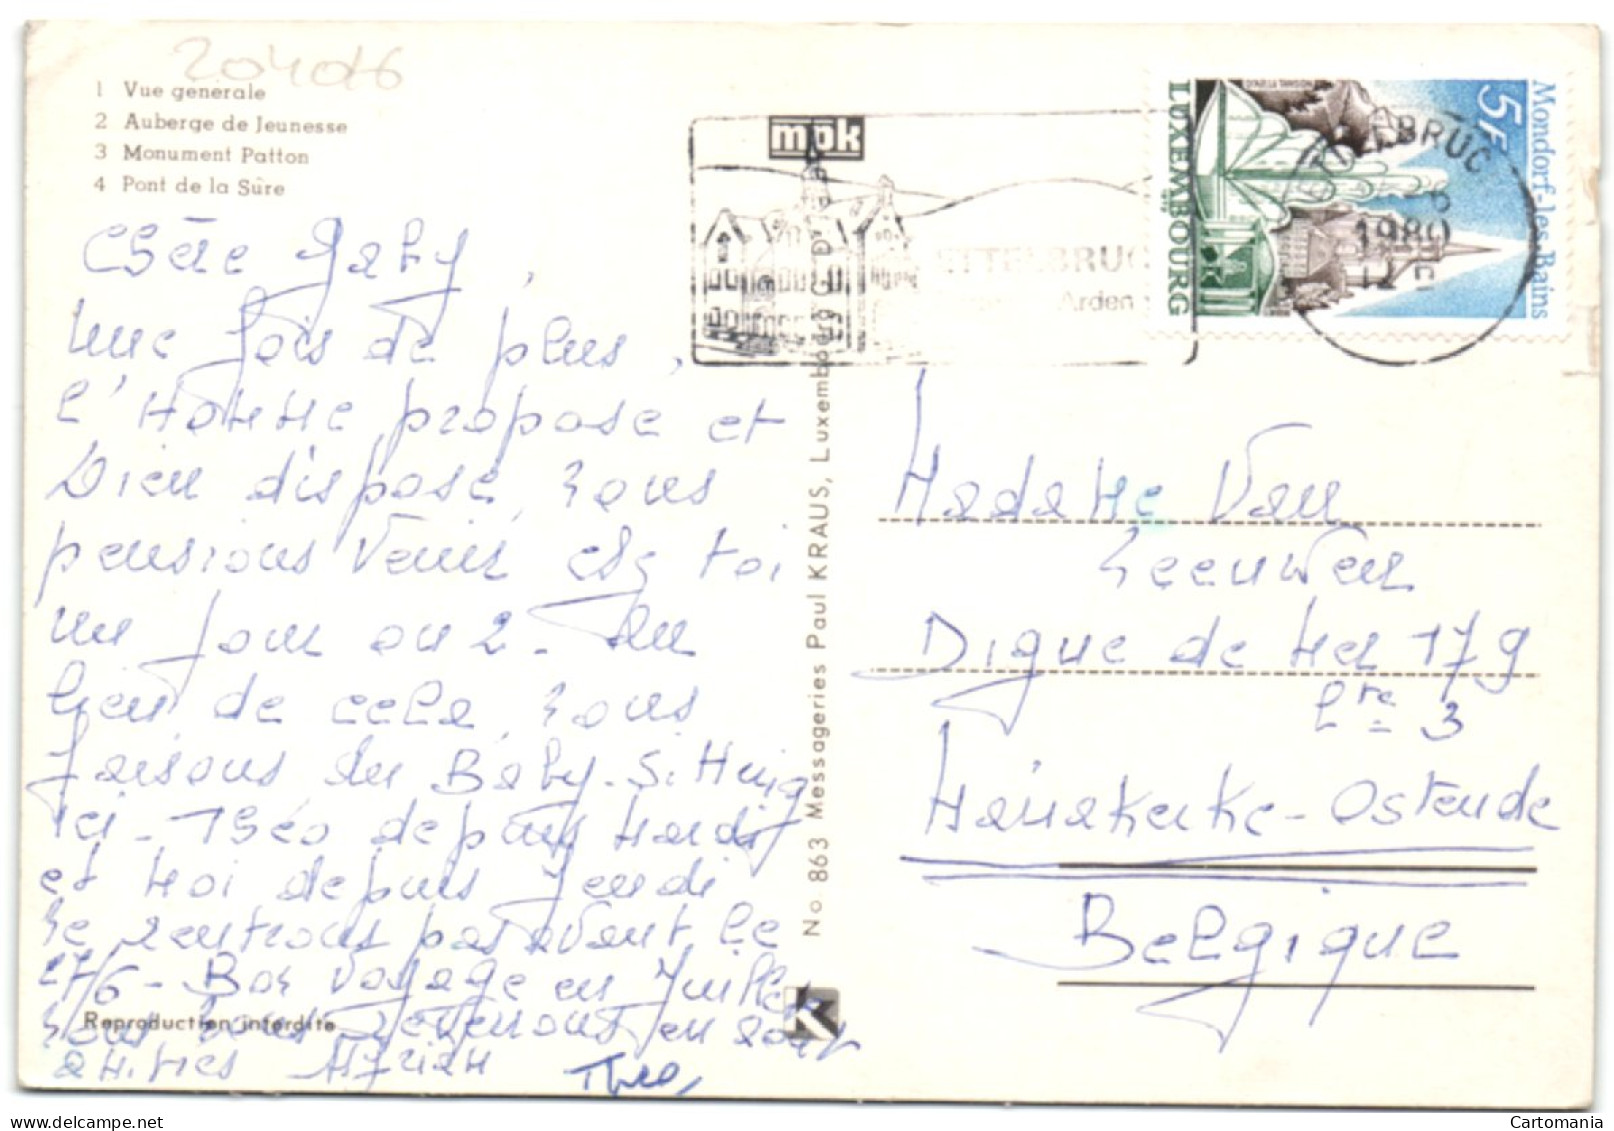 204016
1 Vue generale
2 Auberge de Jeunesse
3 Monument Patton
4 Pont de la Sûre
Chère Gaby,
Une fois de plus,
l'Homme propose et
Dieu dispose, nous
pensions venir chez toi
un jour ou 2. Au
lieu de cela, nous
faisons du Baby-Sitting
ici - Théo depuis Mardi
et moi depuis Jeudi
Ne rentrons pas avant le
27/6 - Bon voyage en Juillet
nous nous reverrons en août
Amitiés Myriam Theo,
Reproduction interdite
No. 863 Messageries Paul KRAUS, Luxembourg G. D.
mpk
ETTELBRUC
Arden
ETTELBRUC
1980
LUXEMBOURG
5F
Mondorf-les-Bains
Madame Van
Leeuwen
Digue de Mer 179
bte 3
Mariakerke-Ostende
Belgique
K
Cartomania